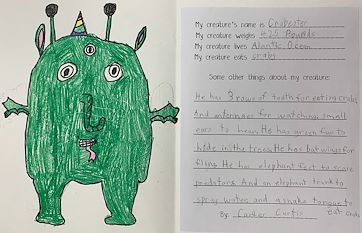 My creature's name is Crabester
My creature weighs 425 Pounds
My creature lives Alantic Oceon
My creature eats crabs
Some other things about my creature:
He has 3 rows of tooth for eatim crabs
And antennaes for watching small
ears to hear. He has green fur to
hide in the trees. He has bat wings for
fliing. He has elephant feet to scare
predators. And an elephant trunk to
spray water, and a snake tongue to
eat crabs
By: Carter Curtis